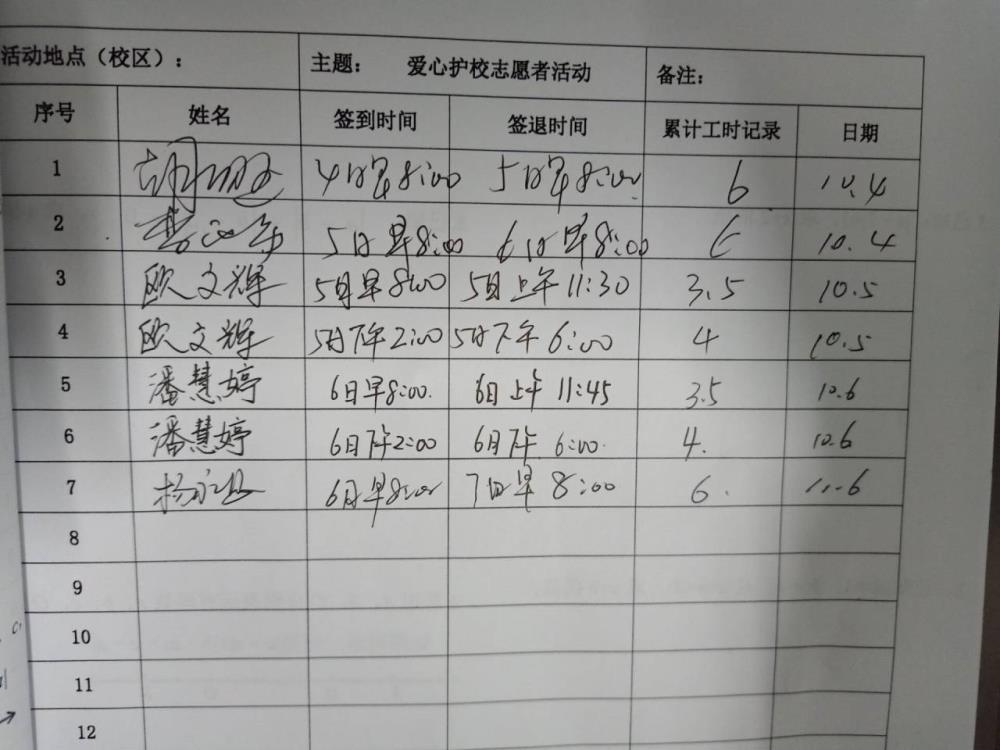 活动地点（校区）： 主题： 爱心护校志愿者活动 备注：
序号 姓名 签到时间 签退时间 累计工时记录 日期
1 4日早8:00 5日早8:00 6 10.4
2 5日早8:00 6日早8:00 6 10.4
3 欧文辉 5日早8:00 5日上午11:30 3.5 10.5
4 欧文辉 5日下午2:00 5日下午6:00 4 10.5
5 潘慧婷 6日早8:00. 6日上午11:45 3.5 10.6
6 潘慧婷 6日下午2:00 6日下午6:00. 4. 10.6
7 6日早8:00 7日早8:00 6.
8
9
10
11
12